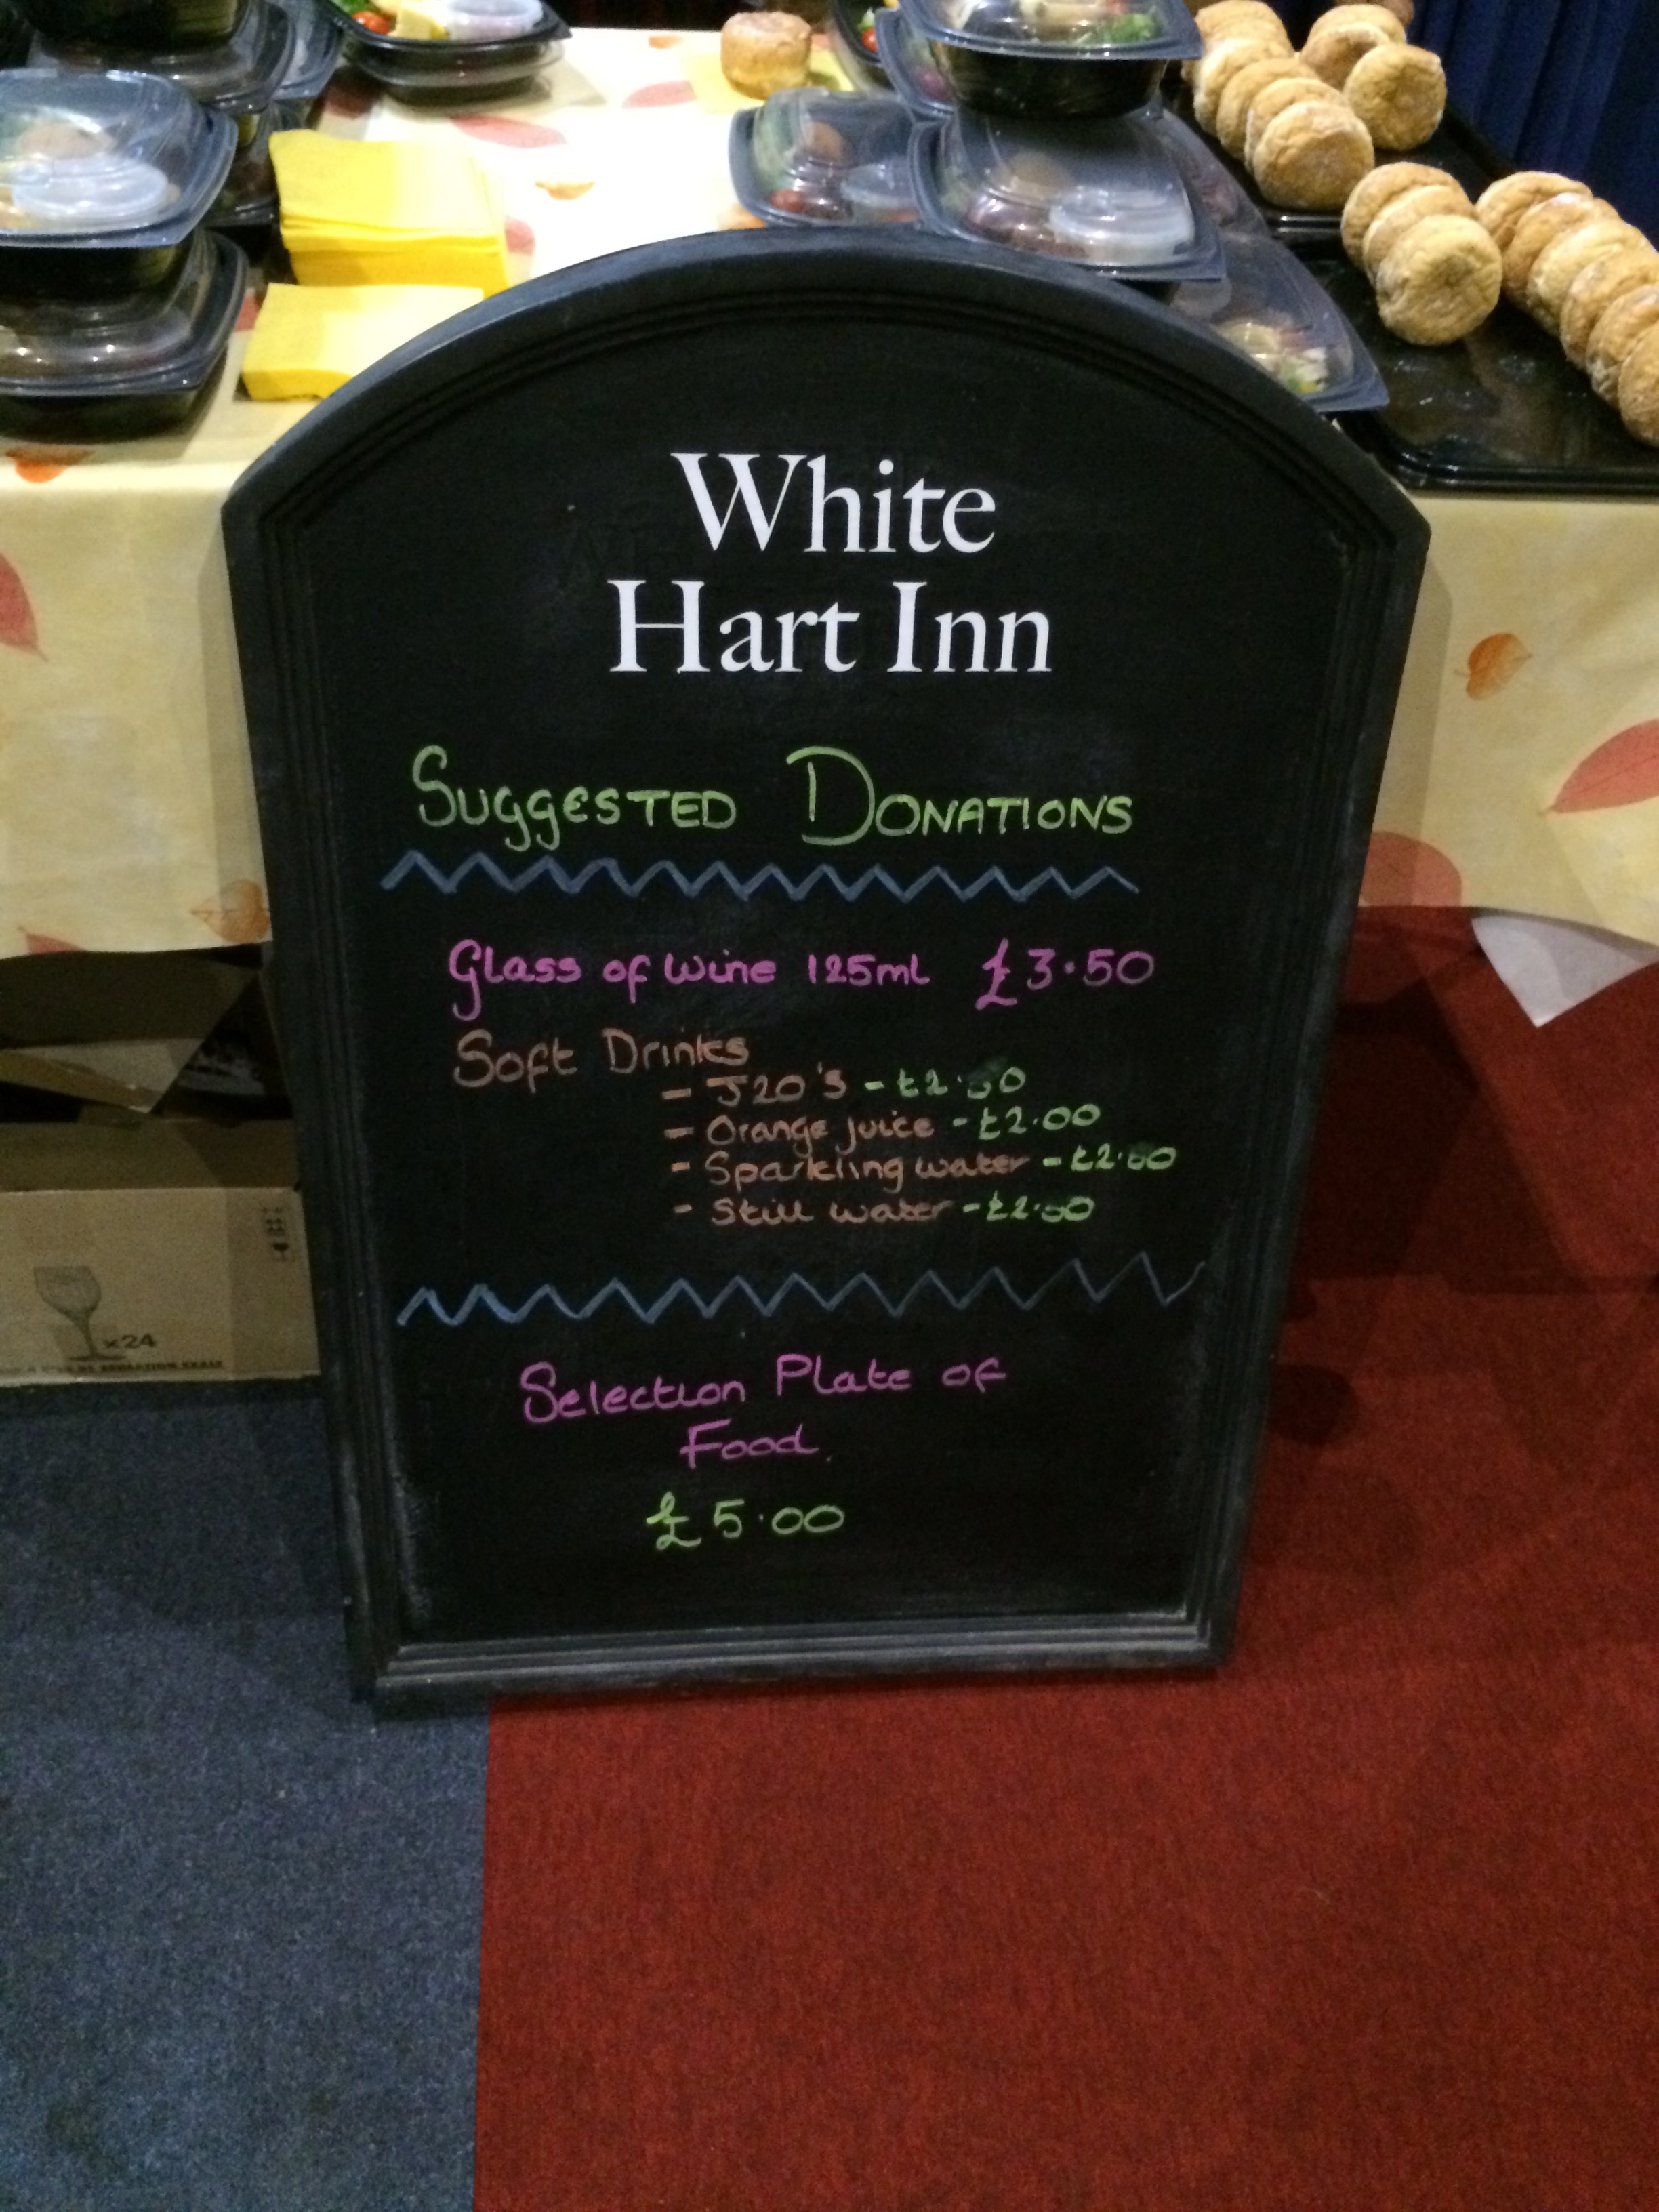 White
Hart Inn
SUGGESTED DONATIONS
Glass of wine 125ml £3.50
Soft Drinks
- J20's -
- Orange juice - £2.00
- Sparkling water -
- Still water -
Selection Plate of
Food
£5.00
x24